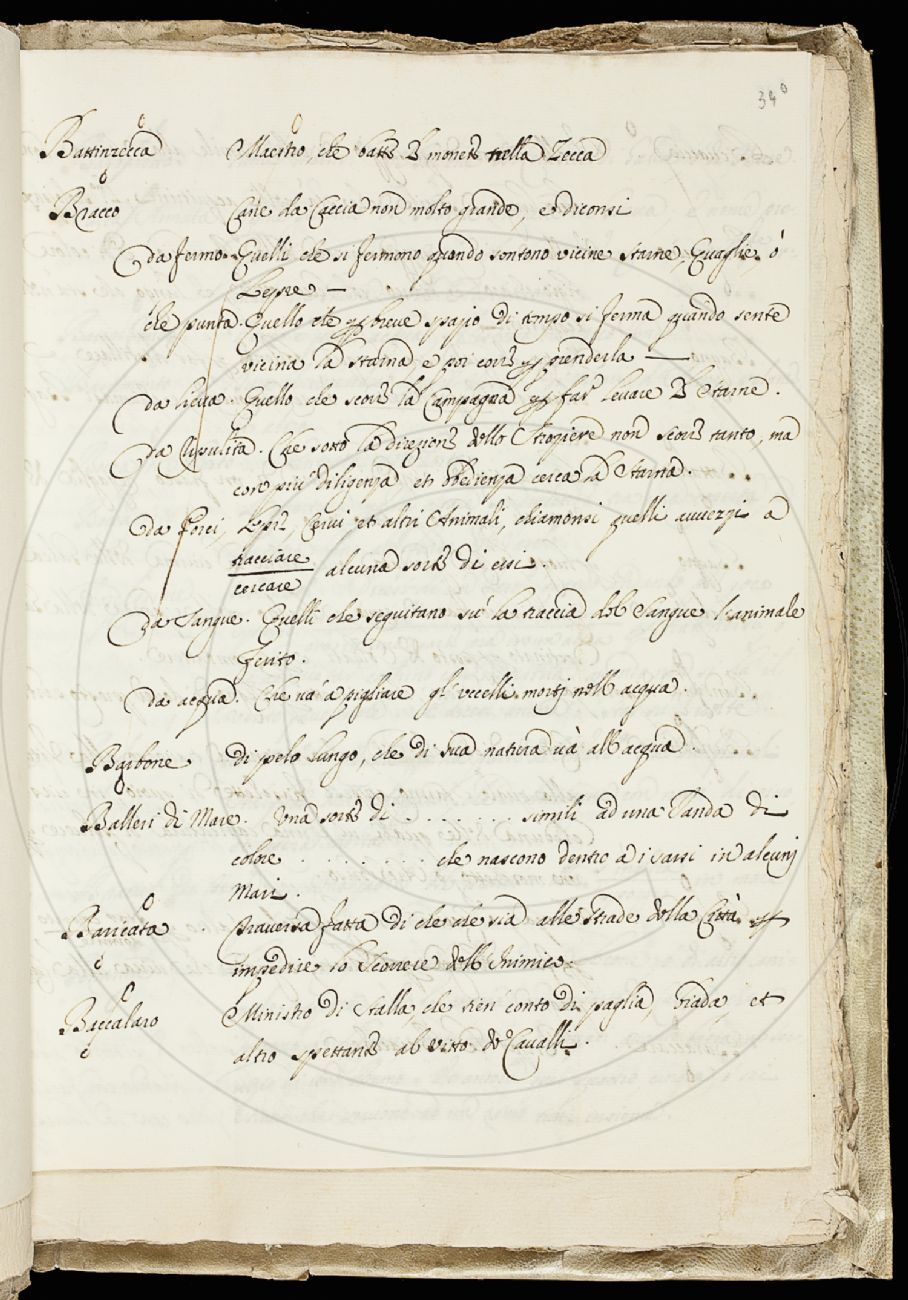 340
Battinzecca Maestro, che batte le monete nella Zecca
Bracco Cane da Caccia non molto grande, e diconsi
da fermo. Quelli che si fermono quando sentono vicine starne, Quaglie ò
Lepre —
che punta Quello che per breue spazio di tempo si ferma quando sente
vicina la starna e poi corre per prenderla —
da lieua. Quello che scorre la Campagna per far leuare le starne.
Da . Che sotto la direzione dello non scorre tanto, ma
con più diligenza et obedienza cerca la starna.
da Porci, Lepri, Cerui et altri Animali, chiamonsi quelli auuezzi a
tracciare
cercare alcuna sorte di essi.
Da Sangue. Quelli che seguitano sù la traccia del Sangue l'animale
ferito.
Da acqua. Che uà a pigliare gl'uccelli morti nell'acqua.
Barbone di pelo lungo, che di sua natura uà all'acqua.
Balleri di Mare. Una sorte di . . . . . . . simili ad una Tanda di
colore . . . . . . . che nascono dentro a i sassi in alcuni
Mari.
Baricata . Trauersa fatta di che che sia alle strade della Città per
impedire lo Scorrere dell'Inimico.
Baccalaro Ministro di stalla, che tien conto di paglia, biada, et
altro spettante al vitto de Caualli.